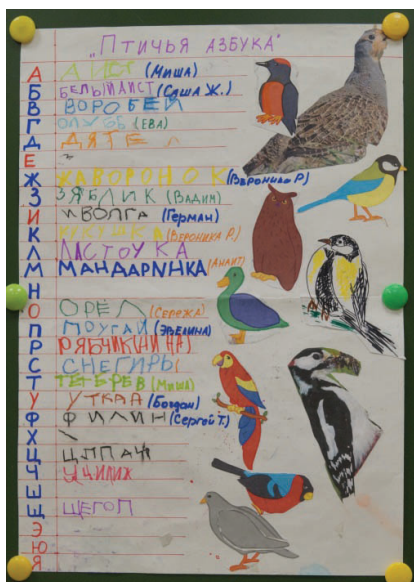 „Птичья азбука"
А АИСТ (Миша)
Б БЕЛЫЙАИСТ (Саша Ж.)
В ВОРОБЕЙ
Г ОЛУБЬ (ЕВА)
Д ДЯТЕЛ
Е
Ж ЖАВОРОНОК (Вероника Р.)
З ЗЯБЛИК (Вадим)
И ИВОЛГА (Герман)
К КУКУШКА (Вероника Р.)
Л ЛАСТОУКА
М МАНДАРИНКА (Анаит)
Н
О ОРЕЛ (Сережа)
П ПОУГАЙ (Эвелина)
Р РЯБЧИК (НИНА)
С СНЕГИРЬ (
Т ТЕТЕРЕВ (Миша)
У УТКАА (Богдан)
Ф ФИЛИН (Сергей Т.)
Х
Ц ЦПАЧ
Ч
Ш
Щ ЩЕГОЛ
Э
Ю
Я